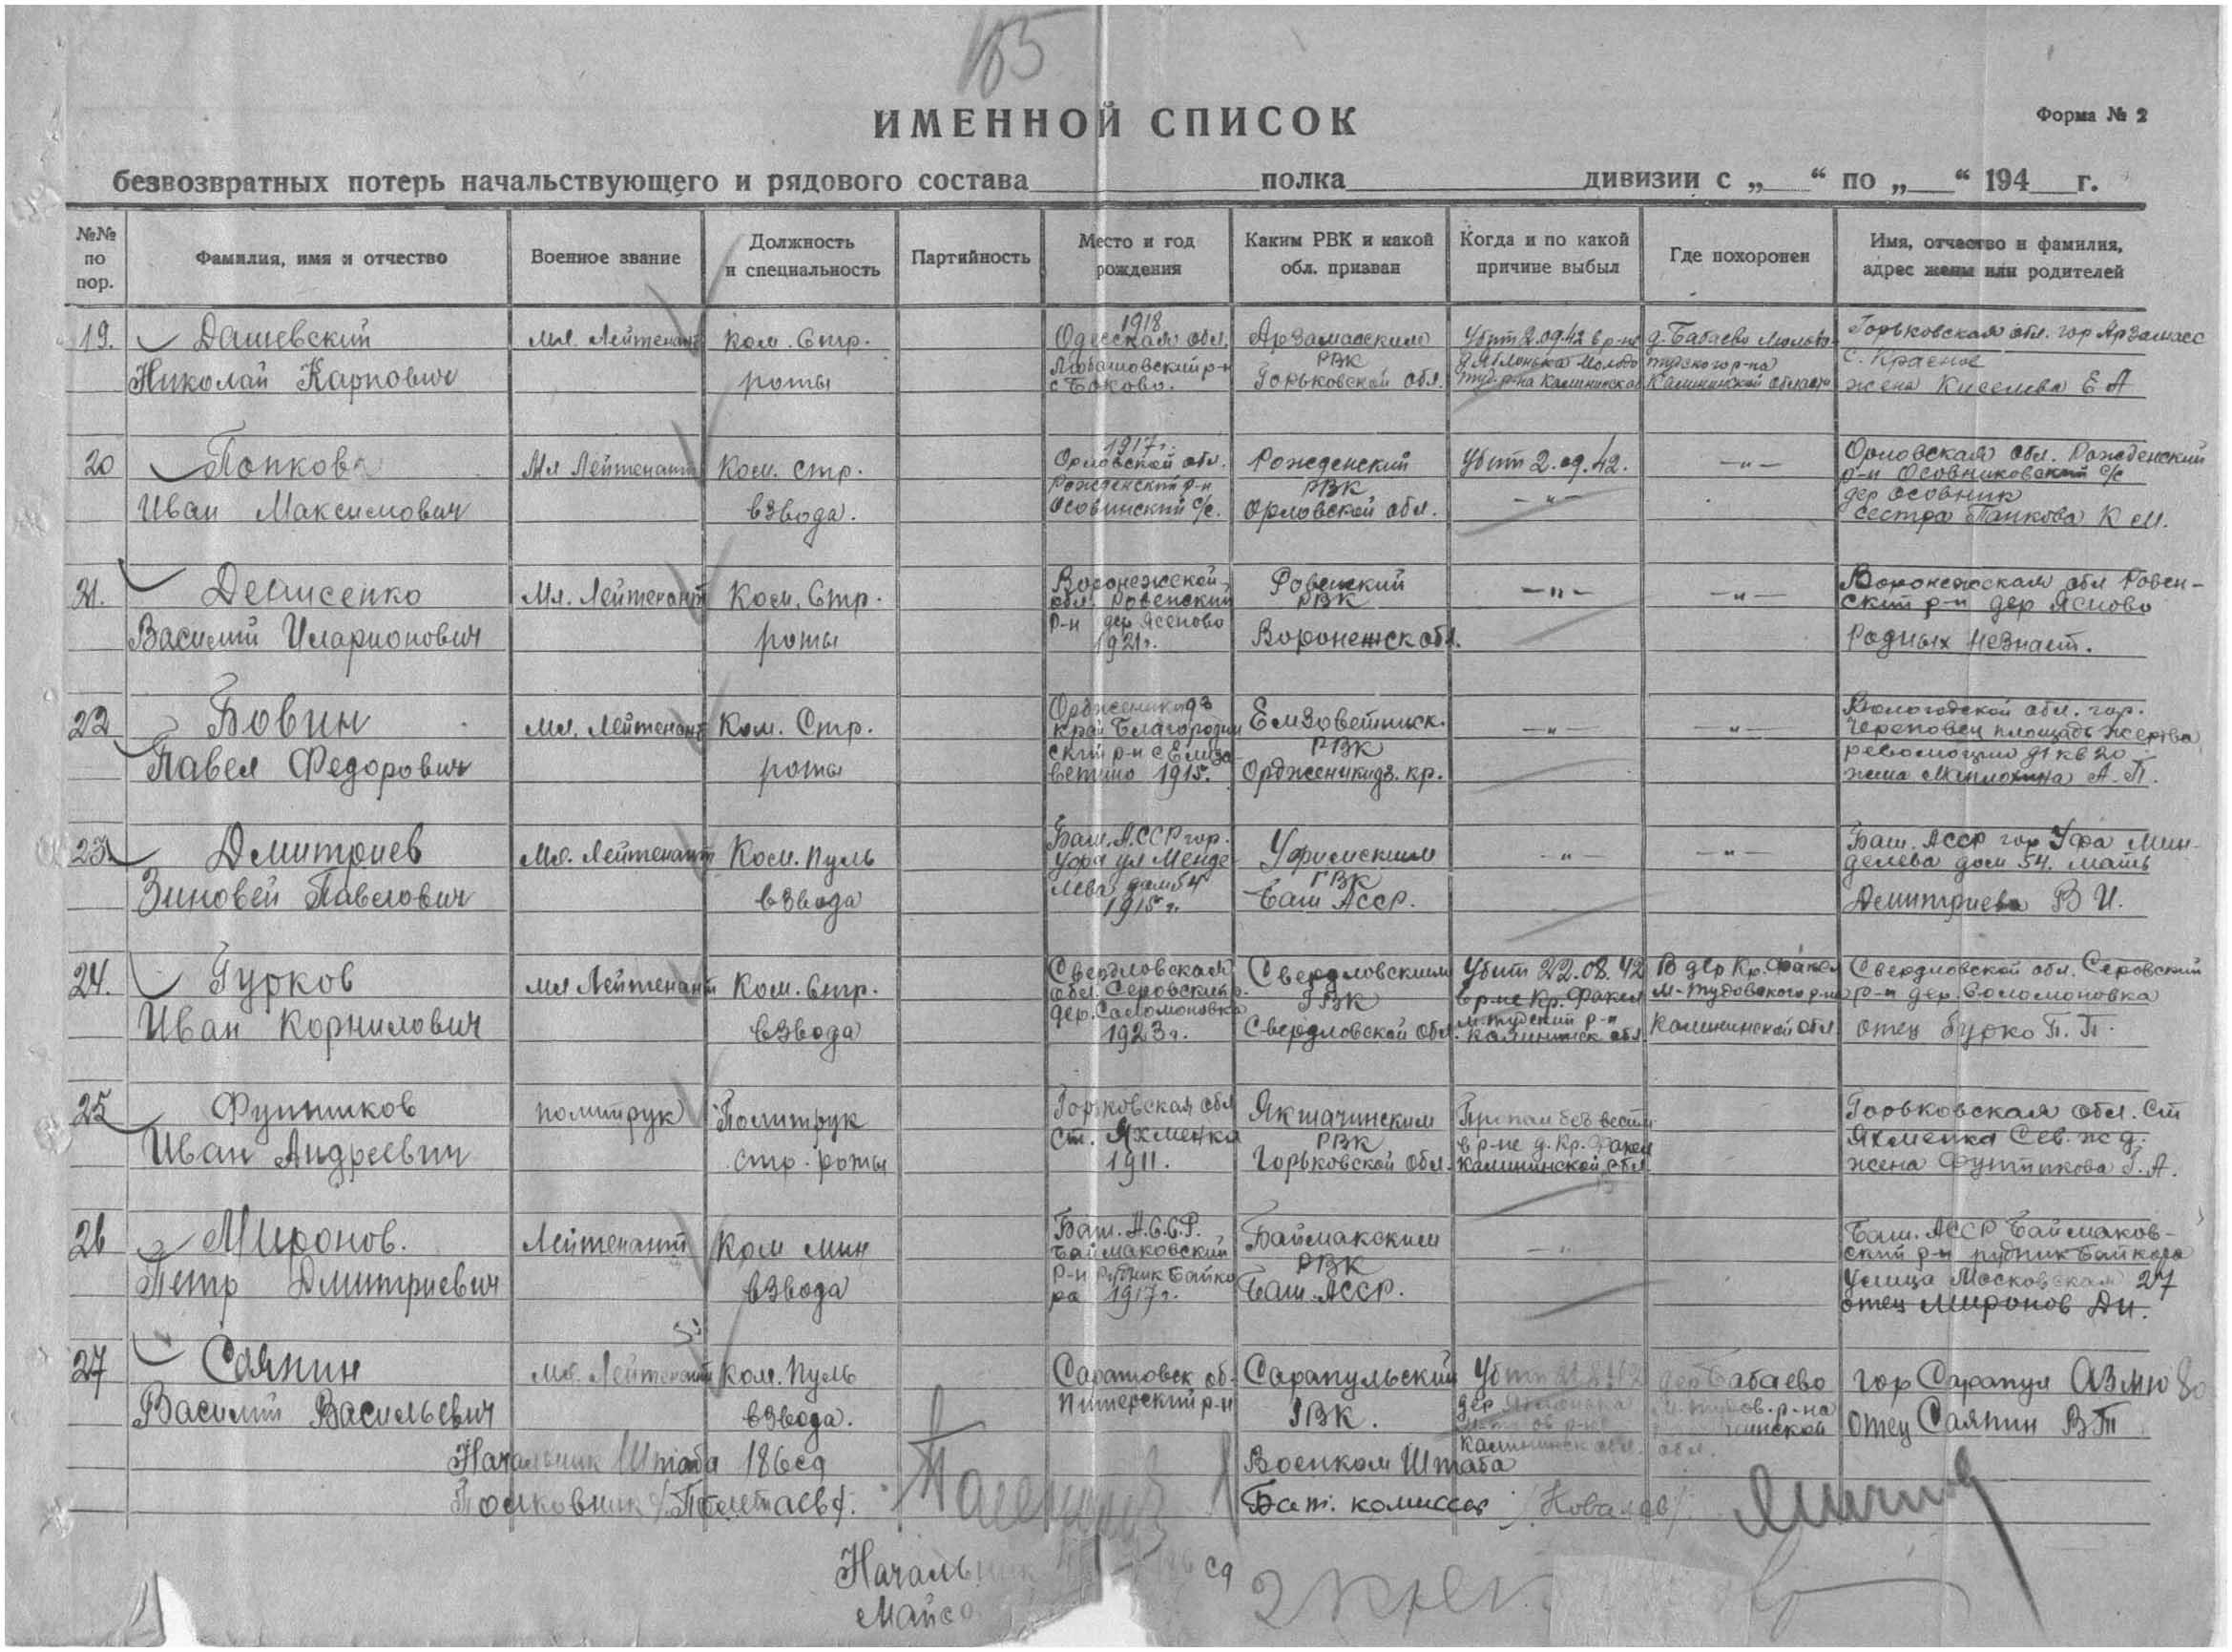 185
ИМЕННОЙ СПИСОК
Форма № 2
безвозвратных потерь начальствующего и рядового состава полка дивизии с „ “ по „ “ 194 г.
№№ по пор.
Фамилия, имя и отчество
Военное звание
Должность и специальность
Партийность
Место и год рождения
Каким РВК и какой обл. призван
Когда и по какой причине выбыл
Где похоронен
Имя, отчество и фамилия, адрес жены или родителей
19. Дашевский Мл. Лейтенант Ком. Стр. 1918 Одесская обл. Арзамасским Убит 2.09.42 в р-не д. Бабаево Молодо- Горьковская обл. гор Арзамасс
Николай Карпович роты Любашовский р-н с Боково. РВК Горьковской обл. д Яблонька Молодо туд. р-на Калининска тудского р-на Калининской области с. Красное жена Киселева Е А
20 Попков Мл Лейтенант Ком. стр. 1917г. Орловской обл. Рожденский Убит 2.09.42. —„— Орловская обл. Рожденский
Иван Максимович взвода. Рожденский р-н Осовинский с/с. РВК Орловской обл. —„— р-н Осовниковский с/с дер Осовник сестра Папкова К М.
21. Денисенко Мл. Лейтенант Ком. Стр. Воронежской обл. Ровенский Ровенский РВК —„— —„— Воронежская обл Ровен- ский р-н дер Ясново
Василий Иларионович роты р-н дер Ясеново 1921г. Воронежск обл. Родных незнает.
22 Бовин Мл. Лейтенант Ком. Стр. Орджоникидз край Благородн Елизоветинск. —„— —„— Вологодской обл. гор. Череповец площадь жертва
Павел Федорович роты ский р-н с Елиза ветино 1915. РВК Орджоникидз. кр. революции д1 кв 20 жена А. П.
23. Дмитриев Мл. Лейтенант Ком. пуль Баш. АССР гор. Уфа ул Менде- Уфимским —„— —„— Баш. АССР гор Уфа Мин- делева дом 54. мать
Зиновей Павлович взвода лева дом 54 1915г. ГВК Баш АССР. Демитриева В И.
24. Гурков Мл Лейтенант Ком. стр. Свердловская обл. Серовский р. Свердловским Убит 22.08.42 В дер Кр. Факел Свердловской обл. Серовский
Иван Корнилович взвода дер. Соломоновка 1923г. ГВК Свердловской обл. в р-не Кр. Факел М-тудский р-н Калининск обл. М-Тудовского р-на Калининской обл р-н дер. Соломоновка отец Гурко П. П.
25 Фунтиков политрук Политрук Горьковская обл Якшачинским Пропал без вести Горьковская обл. ст
Иван Андреевич стр. роты ст. Яхменка 1911. РВК Горьковской обл. в р-не д. Кр. Факел Калининской обл Яхменка Сев. ж д. жена Фунтикова Г. А.
26 Миронов. Лейтенант Ком мин Баш. А.С.С.Р. Баймаковский Баймакским —„— Баш. АССР Баймаков- ский р-н рудник Байкара
Петр Дмитриевич взвода р-н рудник Байка ра 1917г. РВК Баш. АССР. Улица Московская 27 отец Миронов Дн.
27 Саяпин Мл. Лейтенант Ком. пуль Саратовск об. Сарапульский Убит дер Бабаево гор Сарапул
Василий Васильевич взвода. Питерский р-н ГВК. дер. Яблонька Калининск обл. м. тудов. р-на обл. отец Саяпин В П
Начальник Штаба 186сд Военком Штаба
Полковник Бат. комиссар /Ковалев/
Начальник сд
Майо
2 экз